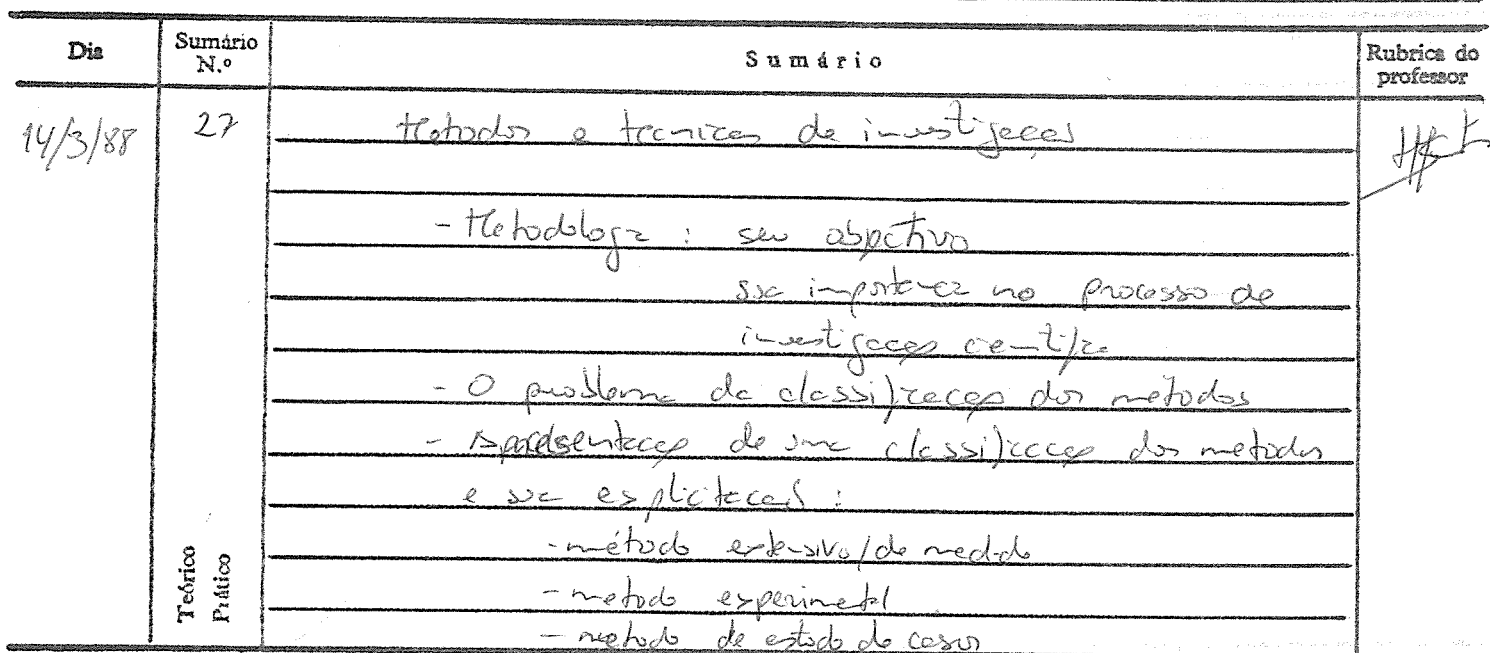 Dia Sumário N.º Sumário Rubrica do professor
14/3/88 27 Metodos e tecnicas de investigaçao
- Metodologia : seu objectivo
sua importancia no processo de
investigaçao cientifica
- O problema da classificaçao dos métodos
- Apresentaçao de uma classificaçao dos metodos
e sua explicitaçao :
- método extensivo/de medida
- metodo experimental
- metodo de estudo de casos
Teórico
Prático